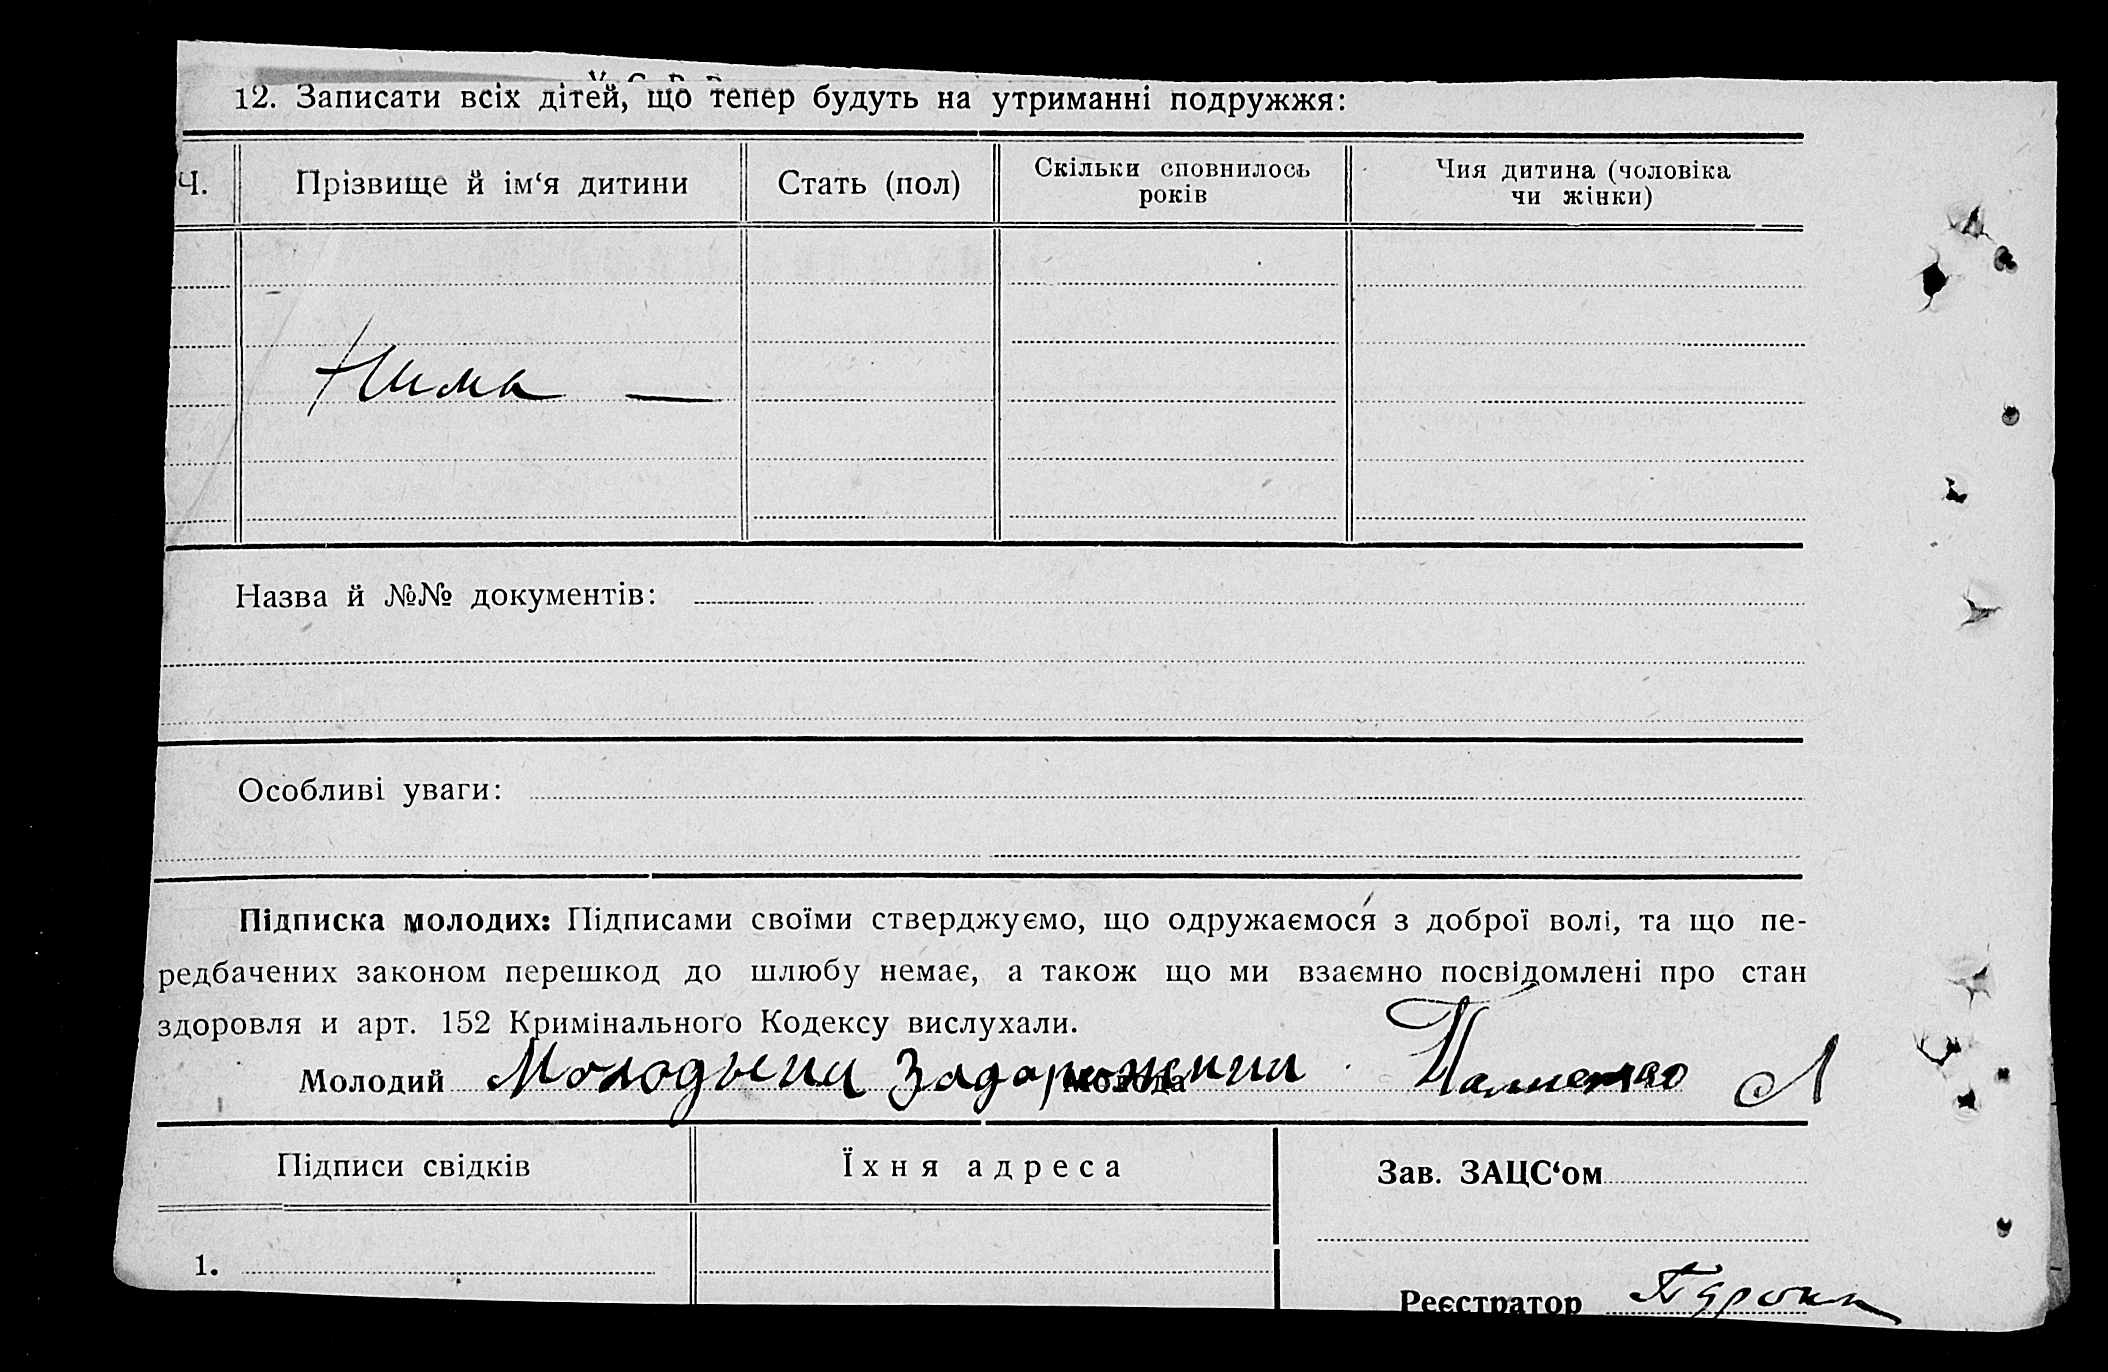 12. Записати всіх дітей, що тепер будуть на утриманні подружжя:
Ч.
Прізвище й ім‘я дитини
Стать (пол)
Скільки сповнилось
років
Чия дитина (чоловіка
чи жінки)
Нима —
Назва й №№ документів:
Особливі уваги:
Підписка молодих: Підписами своїми стверджуємо, що одружаємося з доброї волі, та що пе-
редбачених законом перешкод до шлюбу немає, а також що ми взаємно посвідомлені про стан
здоровля и арт. 152 Кримінального Кодексу вислухали.
Молодий Молода Л
Підписи свідків
Їхня адреса
Зав. ЗАЦС‘ом
1.
Реєстратор